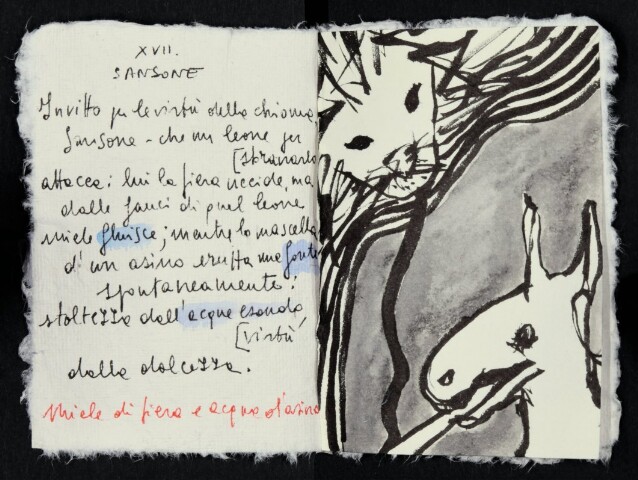 XVII.
SANSONE
Invitto per le virtù della chioma,
Sansone - che un leone per
[sbranarlo
attacca: lui la fiera uccide, ma
dalle fauci di quel leone
miele fluisce; mentre la mascella
d'un asino erutta una fonte
spontaneamente:
stoltezza dall'acque esonda,
[virtù
dalla dolcezza.
Miele di fiera e acqua d'asino